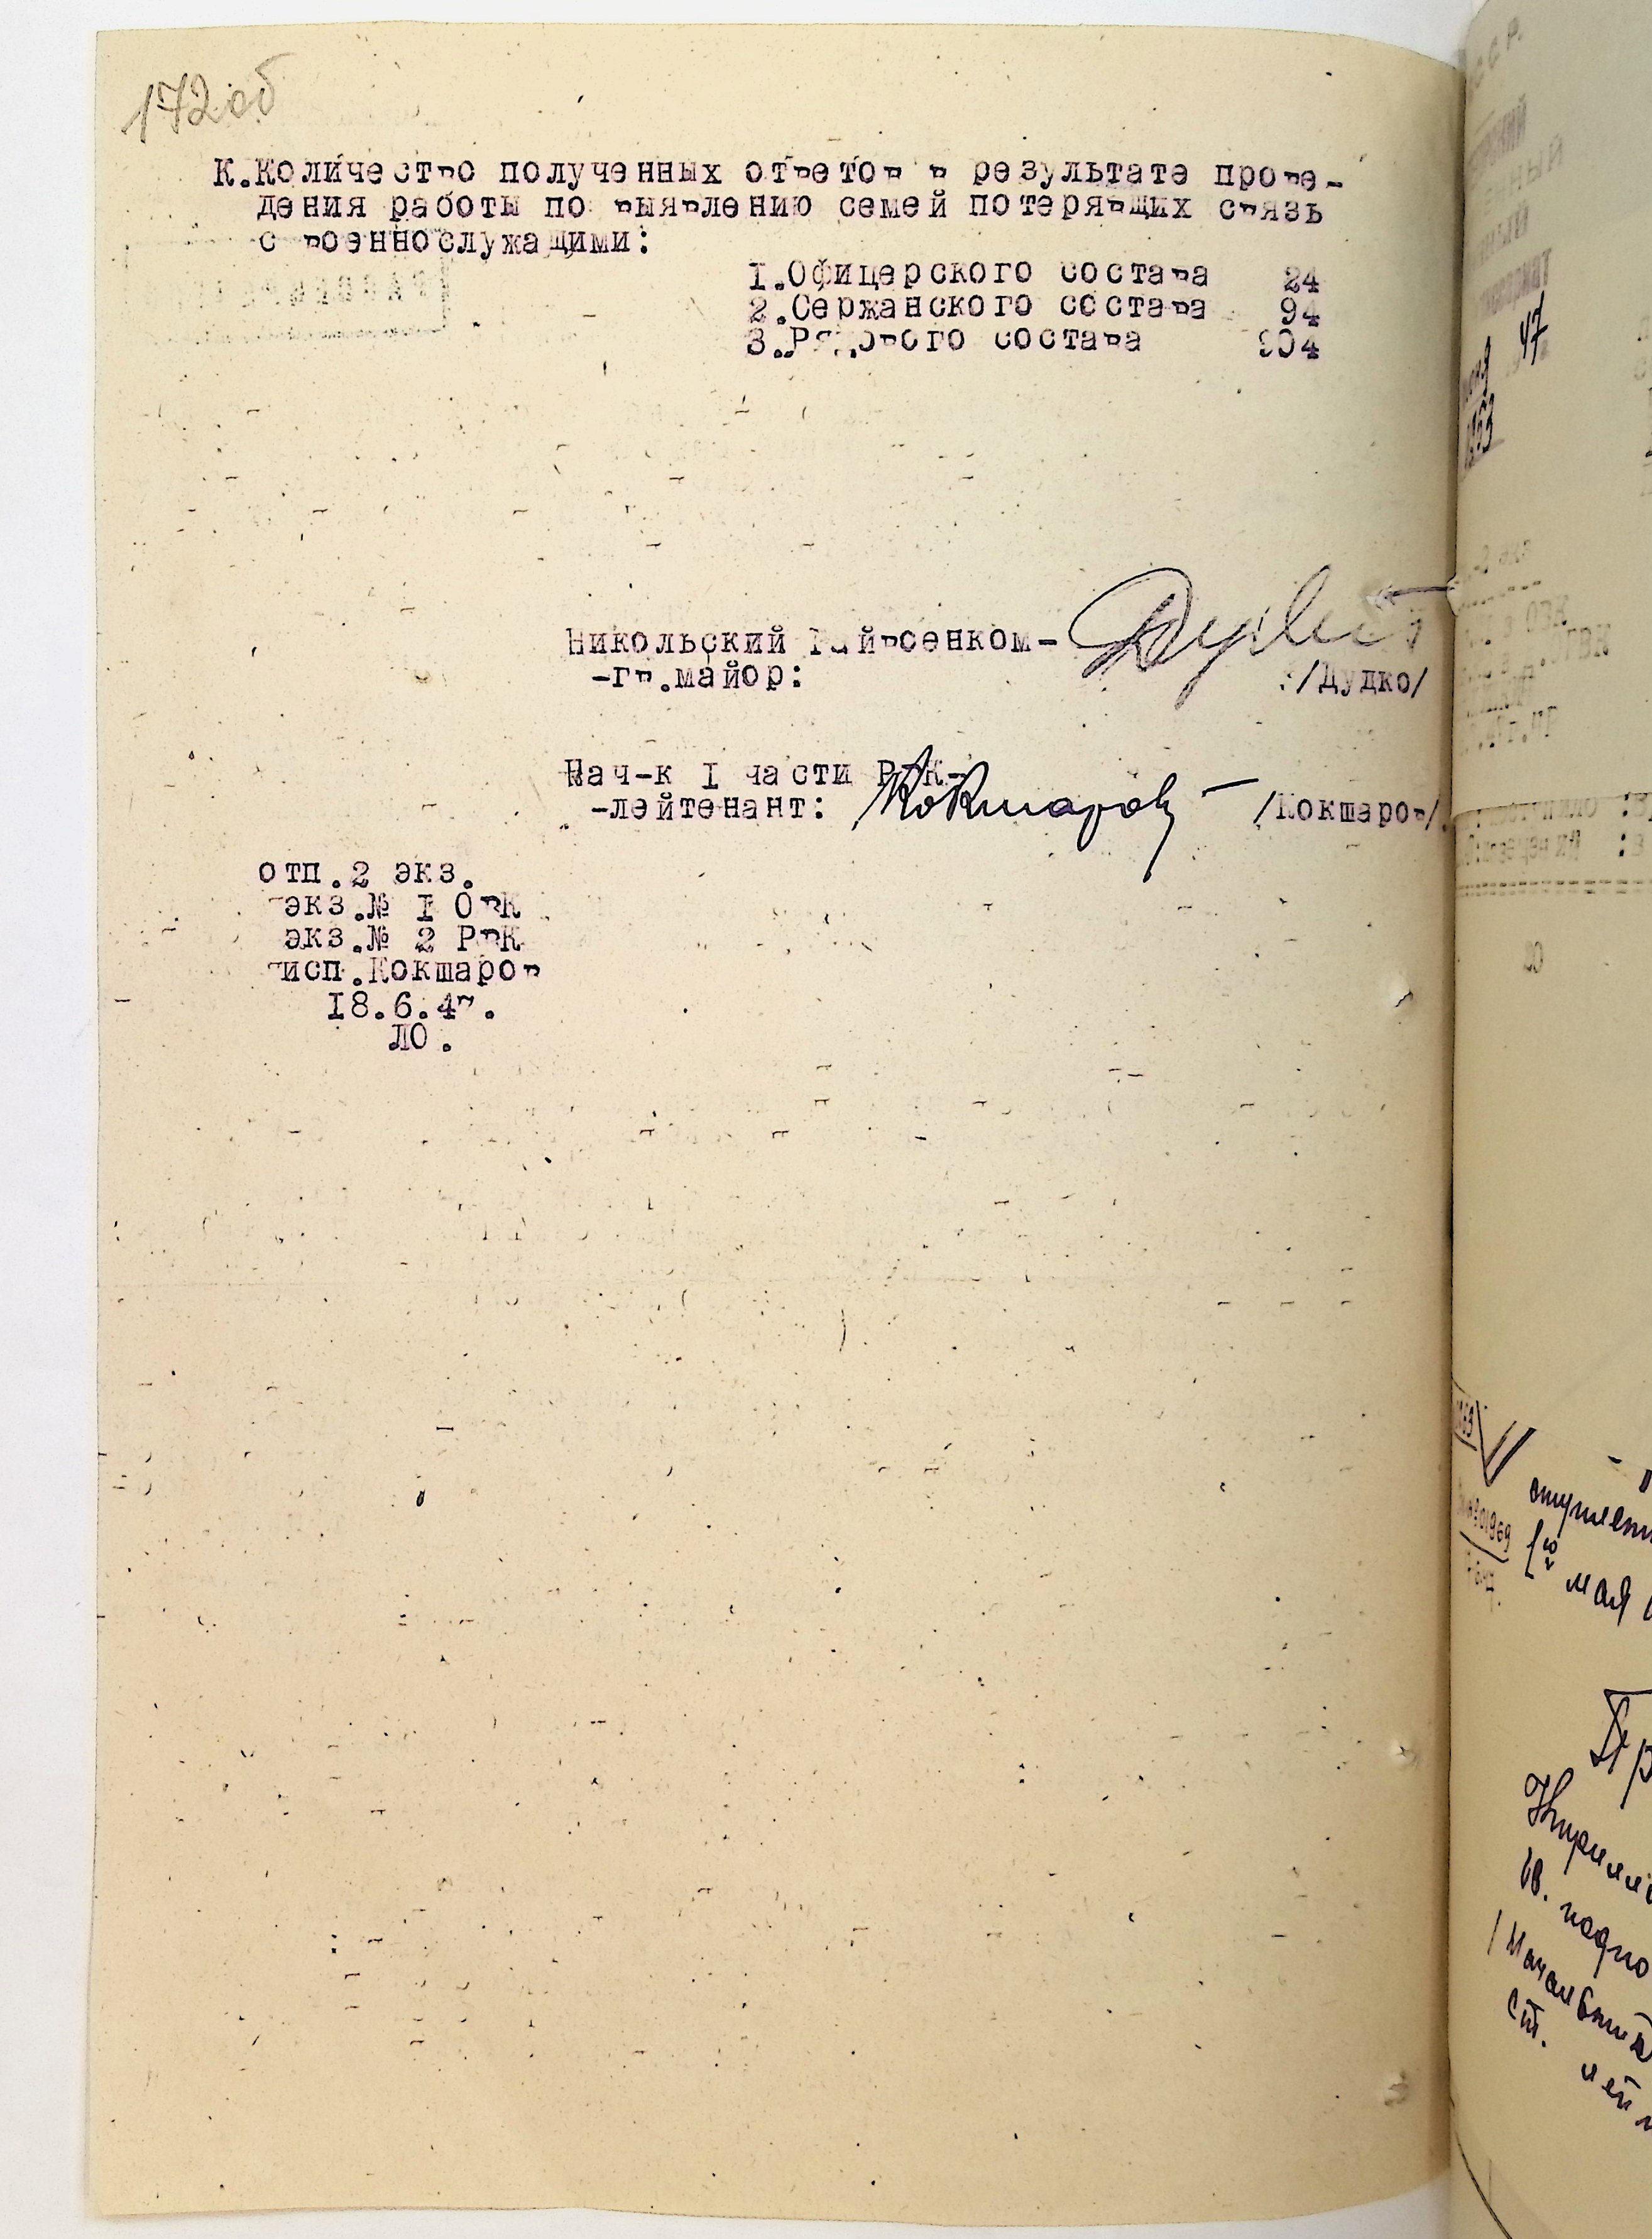 172об
К.Количество полученных ответов в результате прове-
дения работы по выявлению семей потерявщих связь
с военнослужащими:
1.Офицерского состава 24
2.Сержанского состава 94
3.Рядового состава
Никольский Райвоенком-
-гв.майор: /Дудко/
Нач-к I части РвК-
-лейтенант: Кокшаров /Кокшаров/
отп.2 экз.
экз.№ I ОвК
экз.№ 2 РвК
исп.Кокшаров
18.6.47.
ЛО.
47
мая